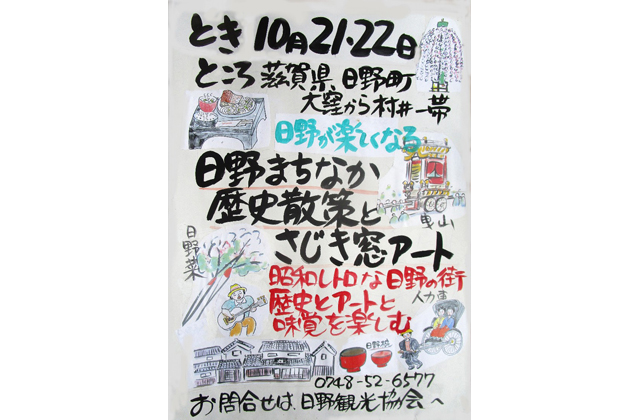 とき 10月21・22日
ところ 滋賀県 日野町
大窪から村井一帯
日野が楽しくなる
日野まちなか
歴史散策と
さじき窓アート
曳山
日野菜
昭和レトロな日野の街
歴史とアートと
味覚を楽しむ
人力車
日野椀
0748-52-6577
お問合せは、日野観光協会へ